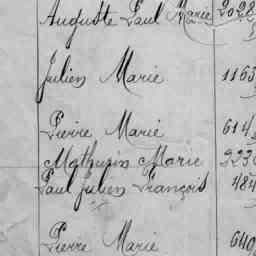 Auguste Paul Marie 2028
Julien Marie 1163
Pierre Marie 614
Mathurin Marie 223
Paul Julien François 484
Pierre Marie 640